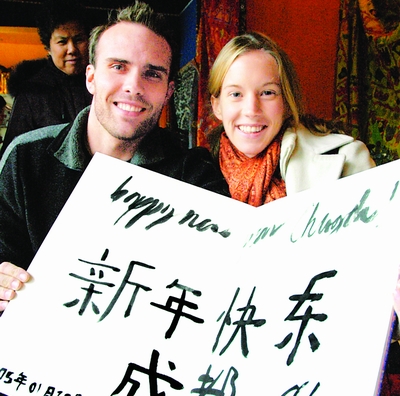 happy new year Chengdu!
新年快乐
成都
05年01月